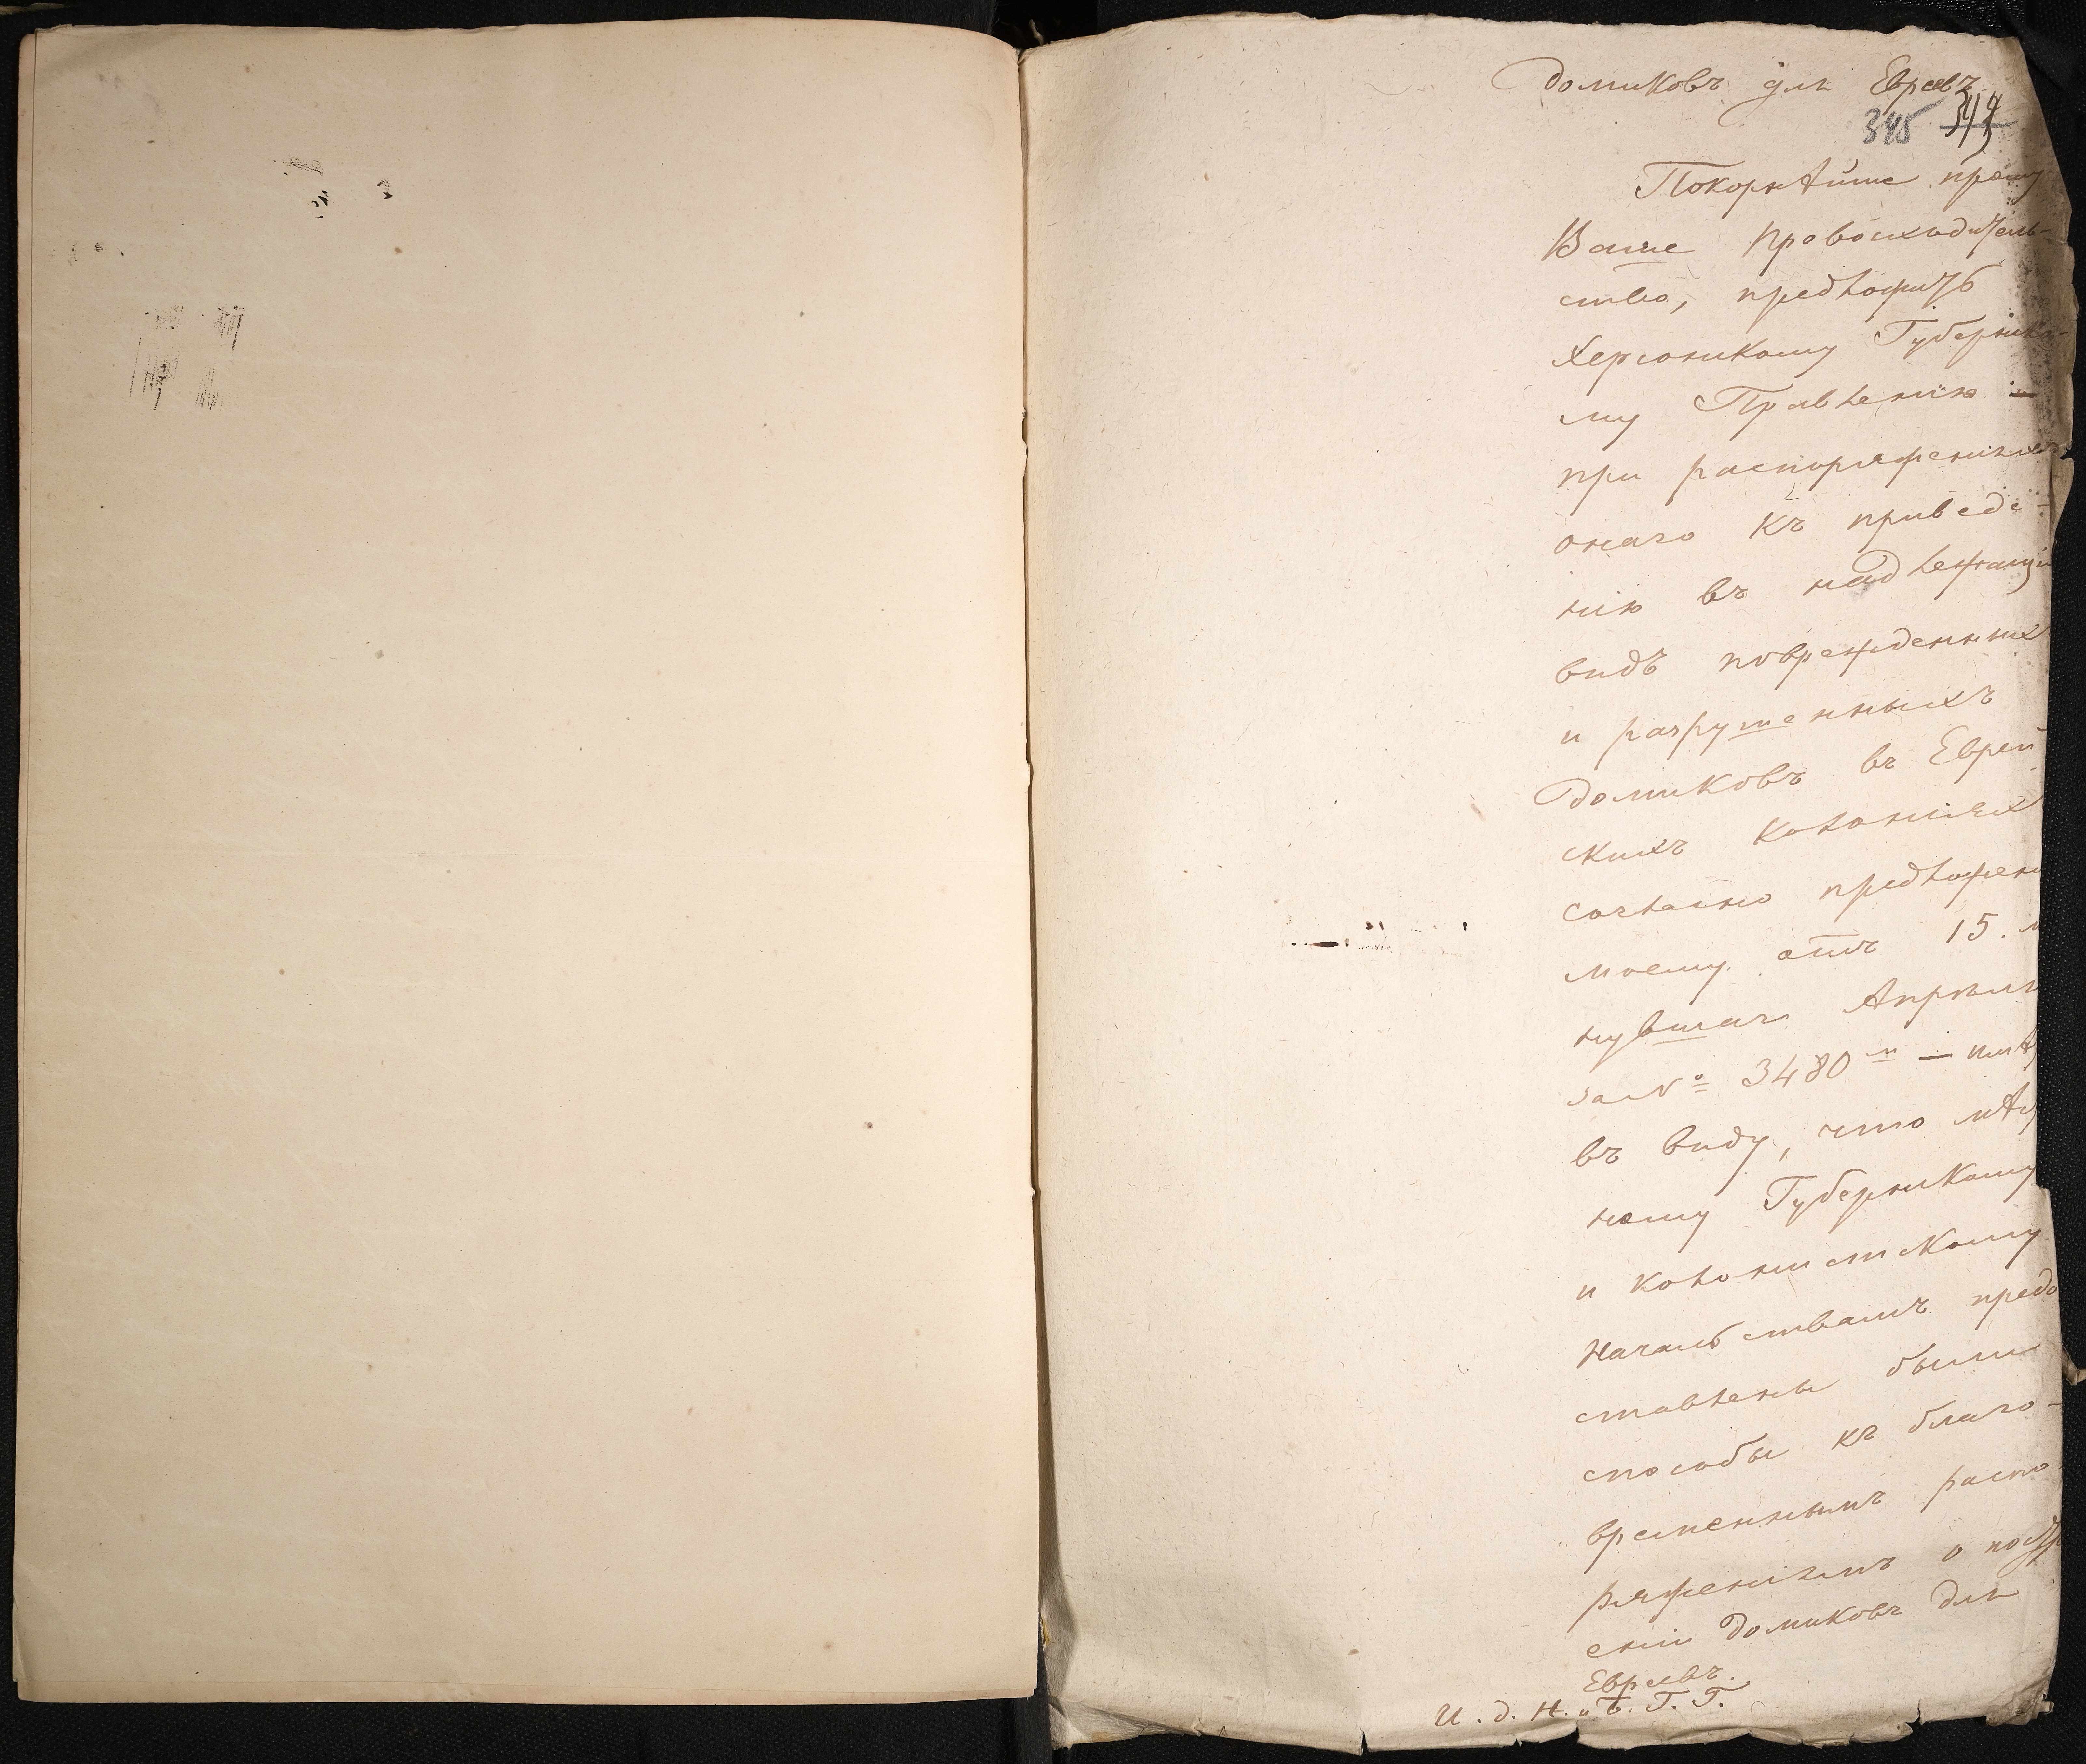 домиковъ для Евреевъ
345 344
Покорнѣйше прошу
Ваше Превосходитель-
ство, предложить
Херсонскому Губернско-
му Правленію —
при распоряженіяхъ
онаго къ приведе-
нію въ надлежащій
видъ поврежденныхъ
и разрушенныхъ
домиковъ въ Еврей
скихъ колоніяхъ
согласно предложенію
моему отъ 15. ми
нувшаго Апрѣля
за № 3480м — имѣть
въ виду, что мѣст
ному Губернскому
и колонистскому
Начальствамъ предо
ставлены были
способы къ благо-
временнымъ распо
ряженіямъ о постро
еніи домиковъ для
Евреевъ.
И. д. Н. и Б. Г. Г.